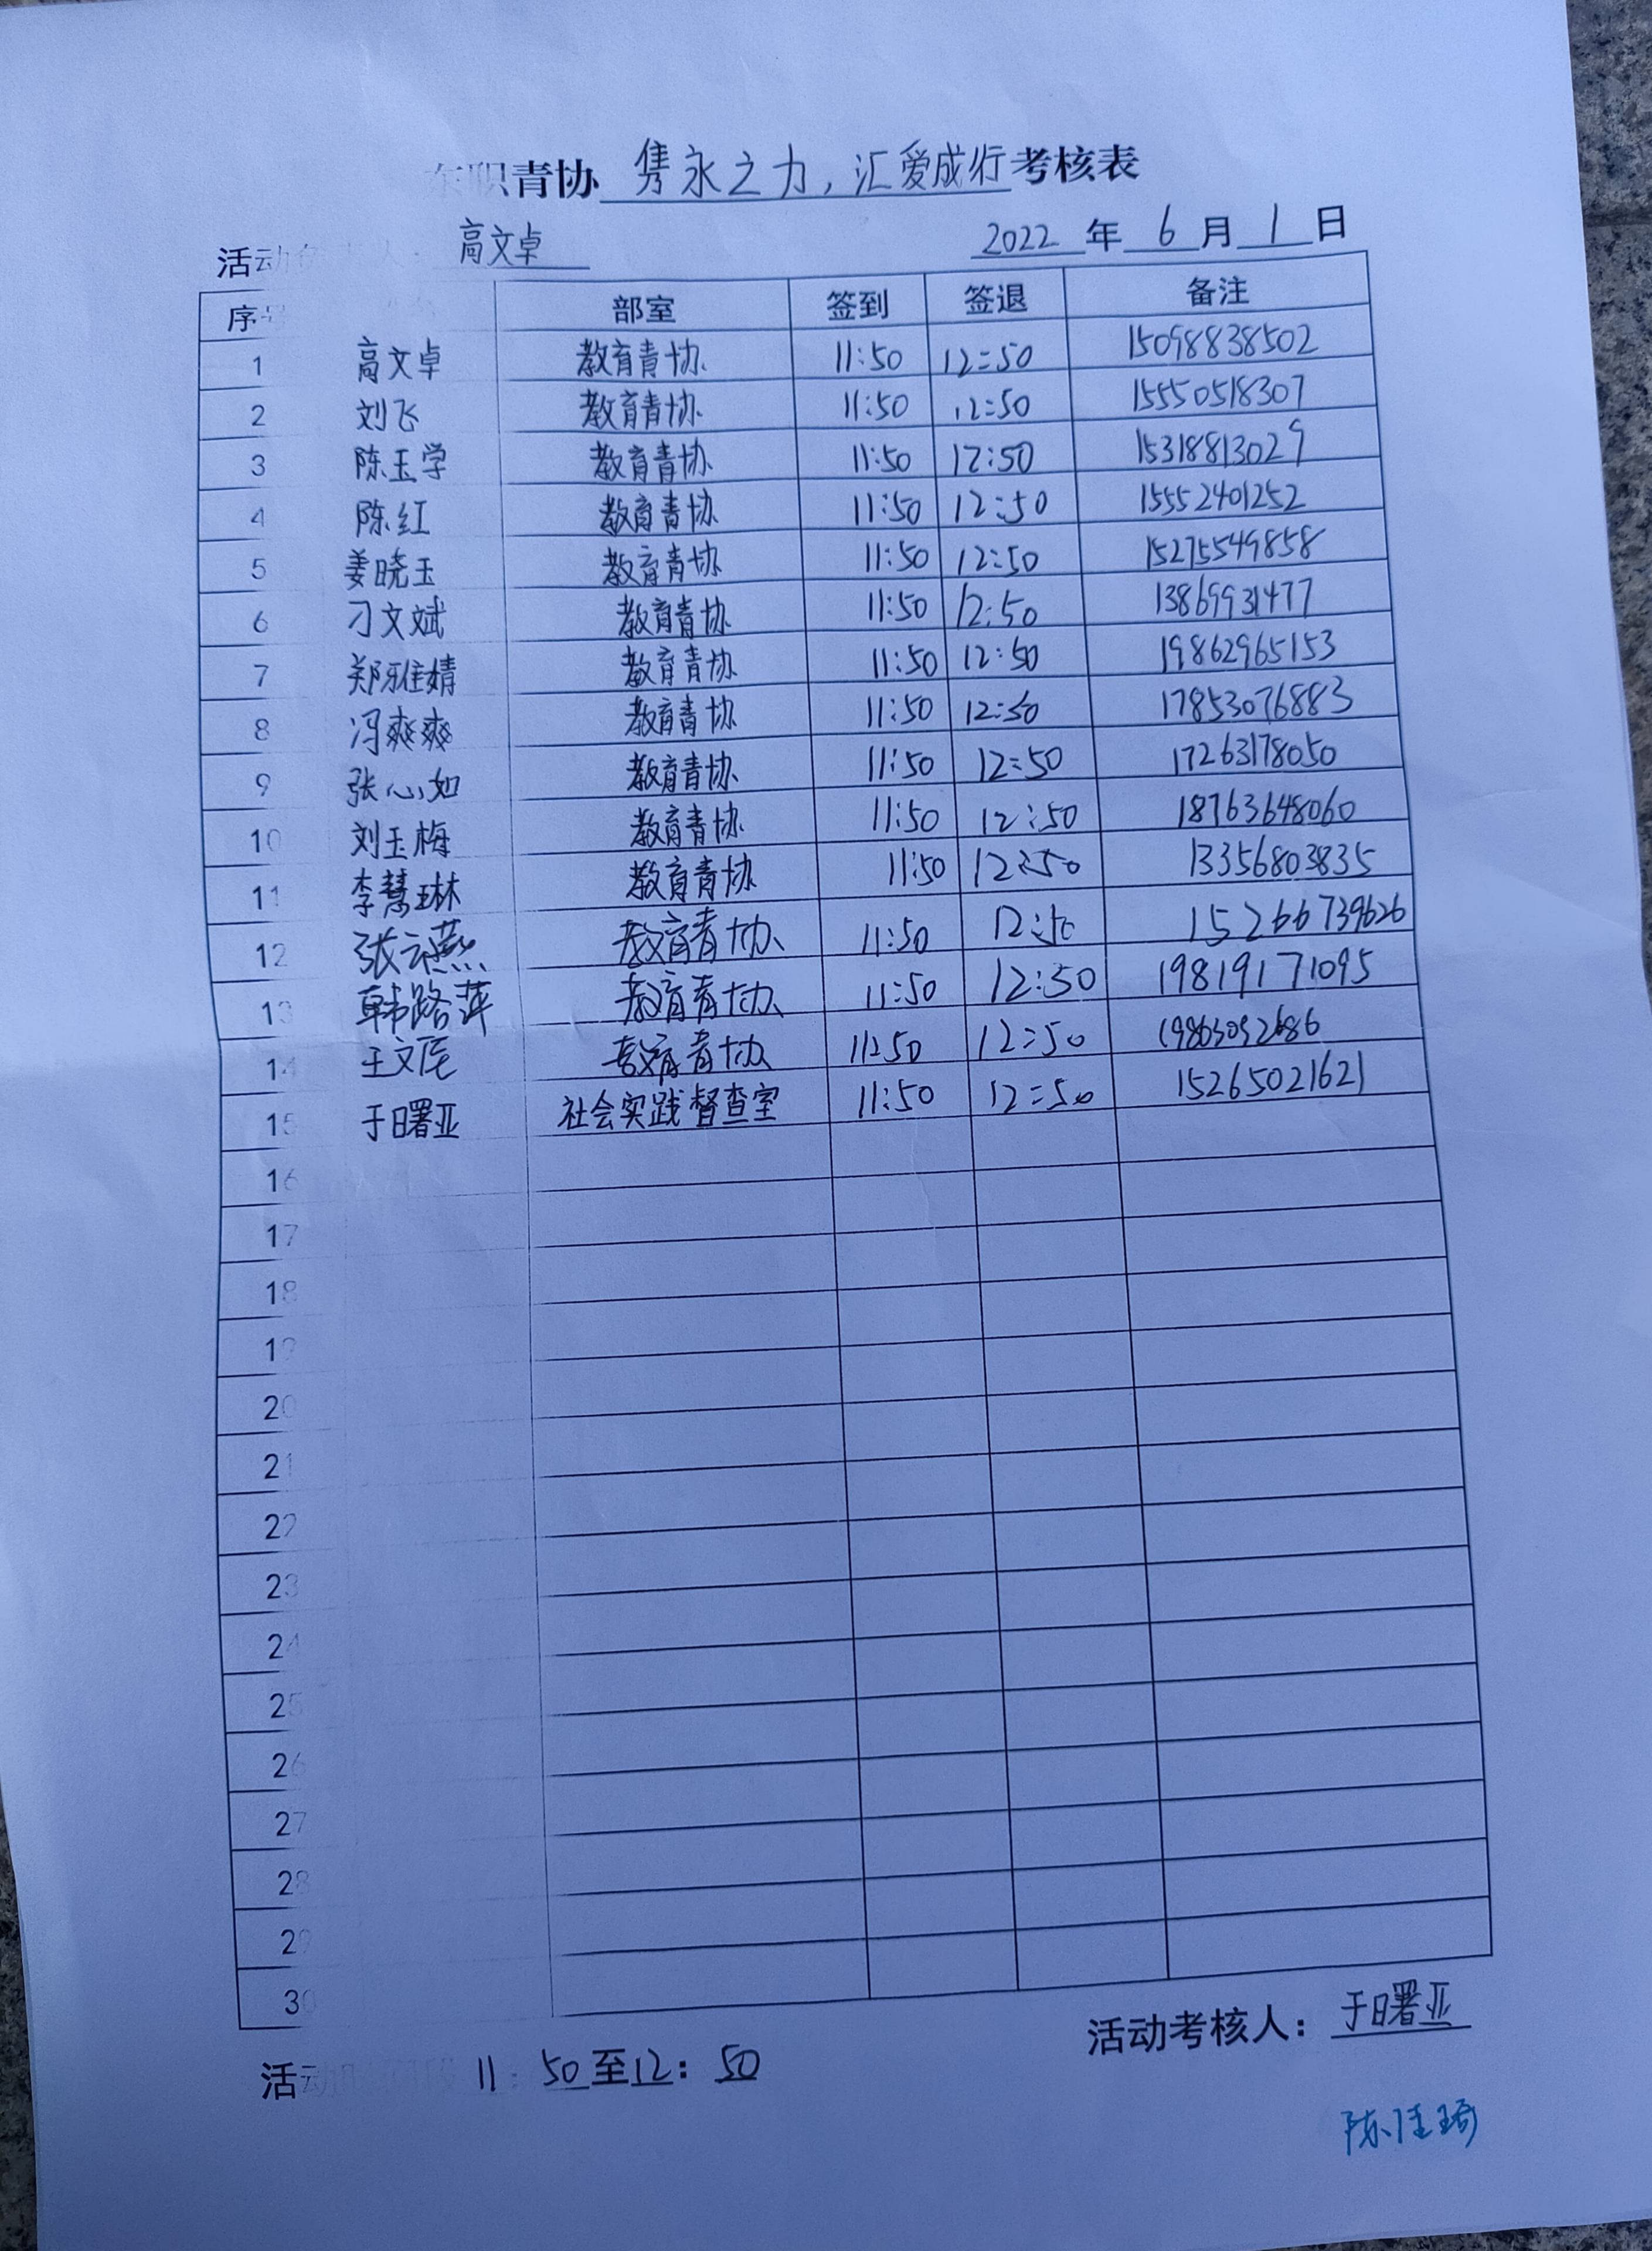 东职青协 隽永之力，汇爱成行 考核表
活动负责人：高文卓 2022 年 6 月 1 日
序号 部室 签到 签退 备注
1 高文卓 教育青协 11:50 12:50 15098838502
2 刘飞 教育青协 11:50 12:50 15550518307
3 陈玉学 教育青协 11:50 12:50 15318813029
4 陈红 教育青协 11:50 12:50 15552401252
5 姜晓玉 教育青协 11:50 12:50 15275549858
6 刁文斌 教育青协 11:50 12:50 13869931477
7 郑雅婧 教育青协 11:50 12:50 19862965153
8 冯爽爽 教育青协 11:50 12:50 17853076883
9 张心如 教育青协 11:50 12:50 17263178050
10 刘玉梅 教育青协 11:50 12:50 18763648060
11 李慧琳 教育青协 11:50 12:50 13356803835
12 张云燕 教育青协 11:50 12:50 15266739626
13 韩路萍 教育青协 11:50 12:50 19819171095
14 王文 教育青协 11:50 12:50
15 于曙亚 社会实践督查室 11:50 12:50 15265021621
16
17
18
19
20
21
22
23
24
25
26
27
28
29
30
活动考核人：于曙亚
活动时间段 11：50至12：50
陈佳琦